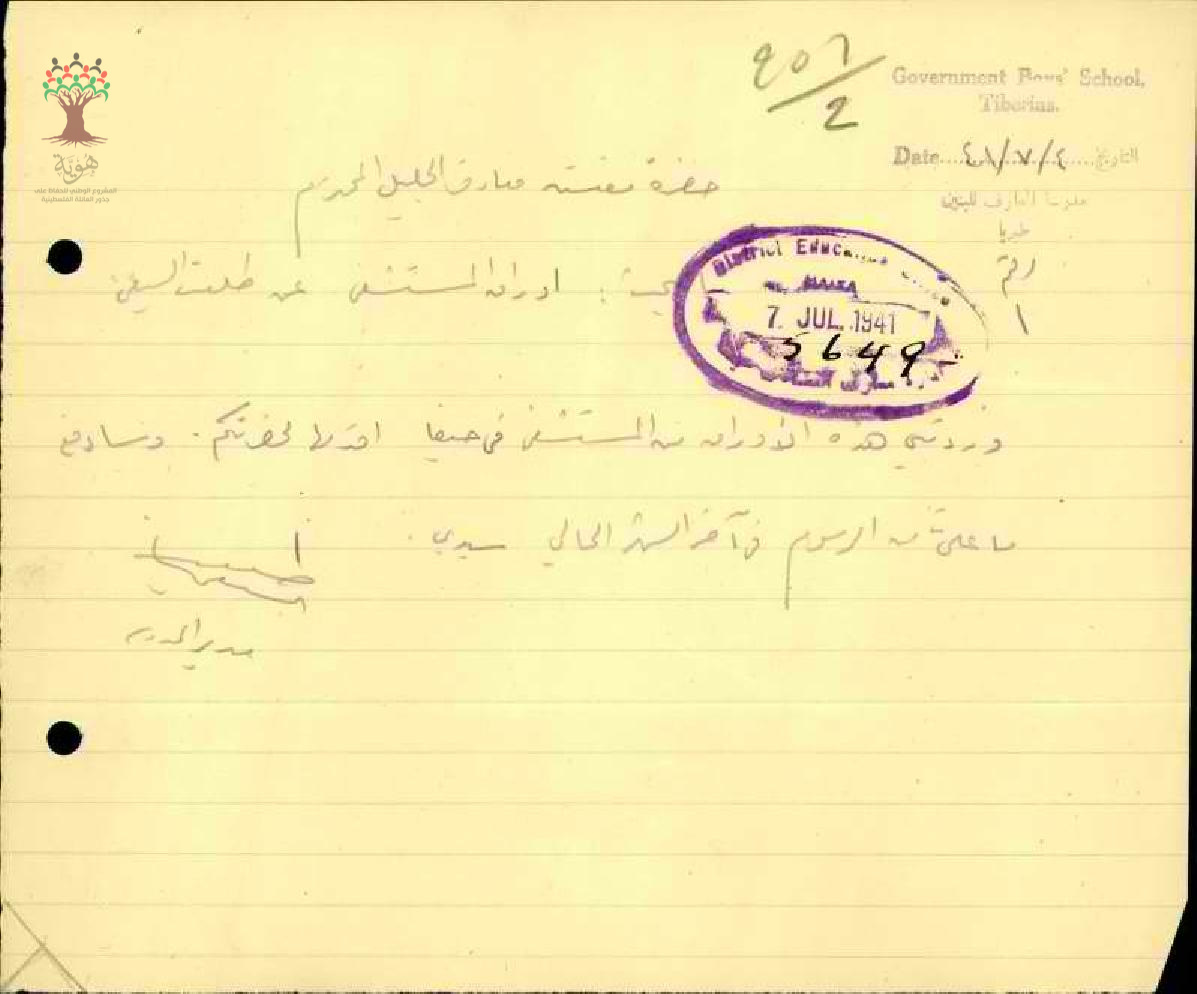 901/2
Government Boys' School,
Tiberias.
Date ٤١/٧/٤ التاريخ
مدرسة المعارف للبنين
طبريا
الرقم
١
هوية
المشروع الوطني للحفاظ على
جذور العائلة الفلسطينية
حضرة مفتش معارف الجليل المحترم
District Education Office
HAIFA
7 JUL. 1941
5649
اوراق المستشفى عن طلعت السيفي
وردتني هذه الاوراق من المستشفى في حيفا اقدمها لحضرتكم. وسادفع
ما علي من الرسوم في آخر الشهر الحالي سيدي.
مدير المدرسة